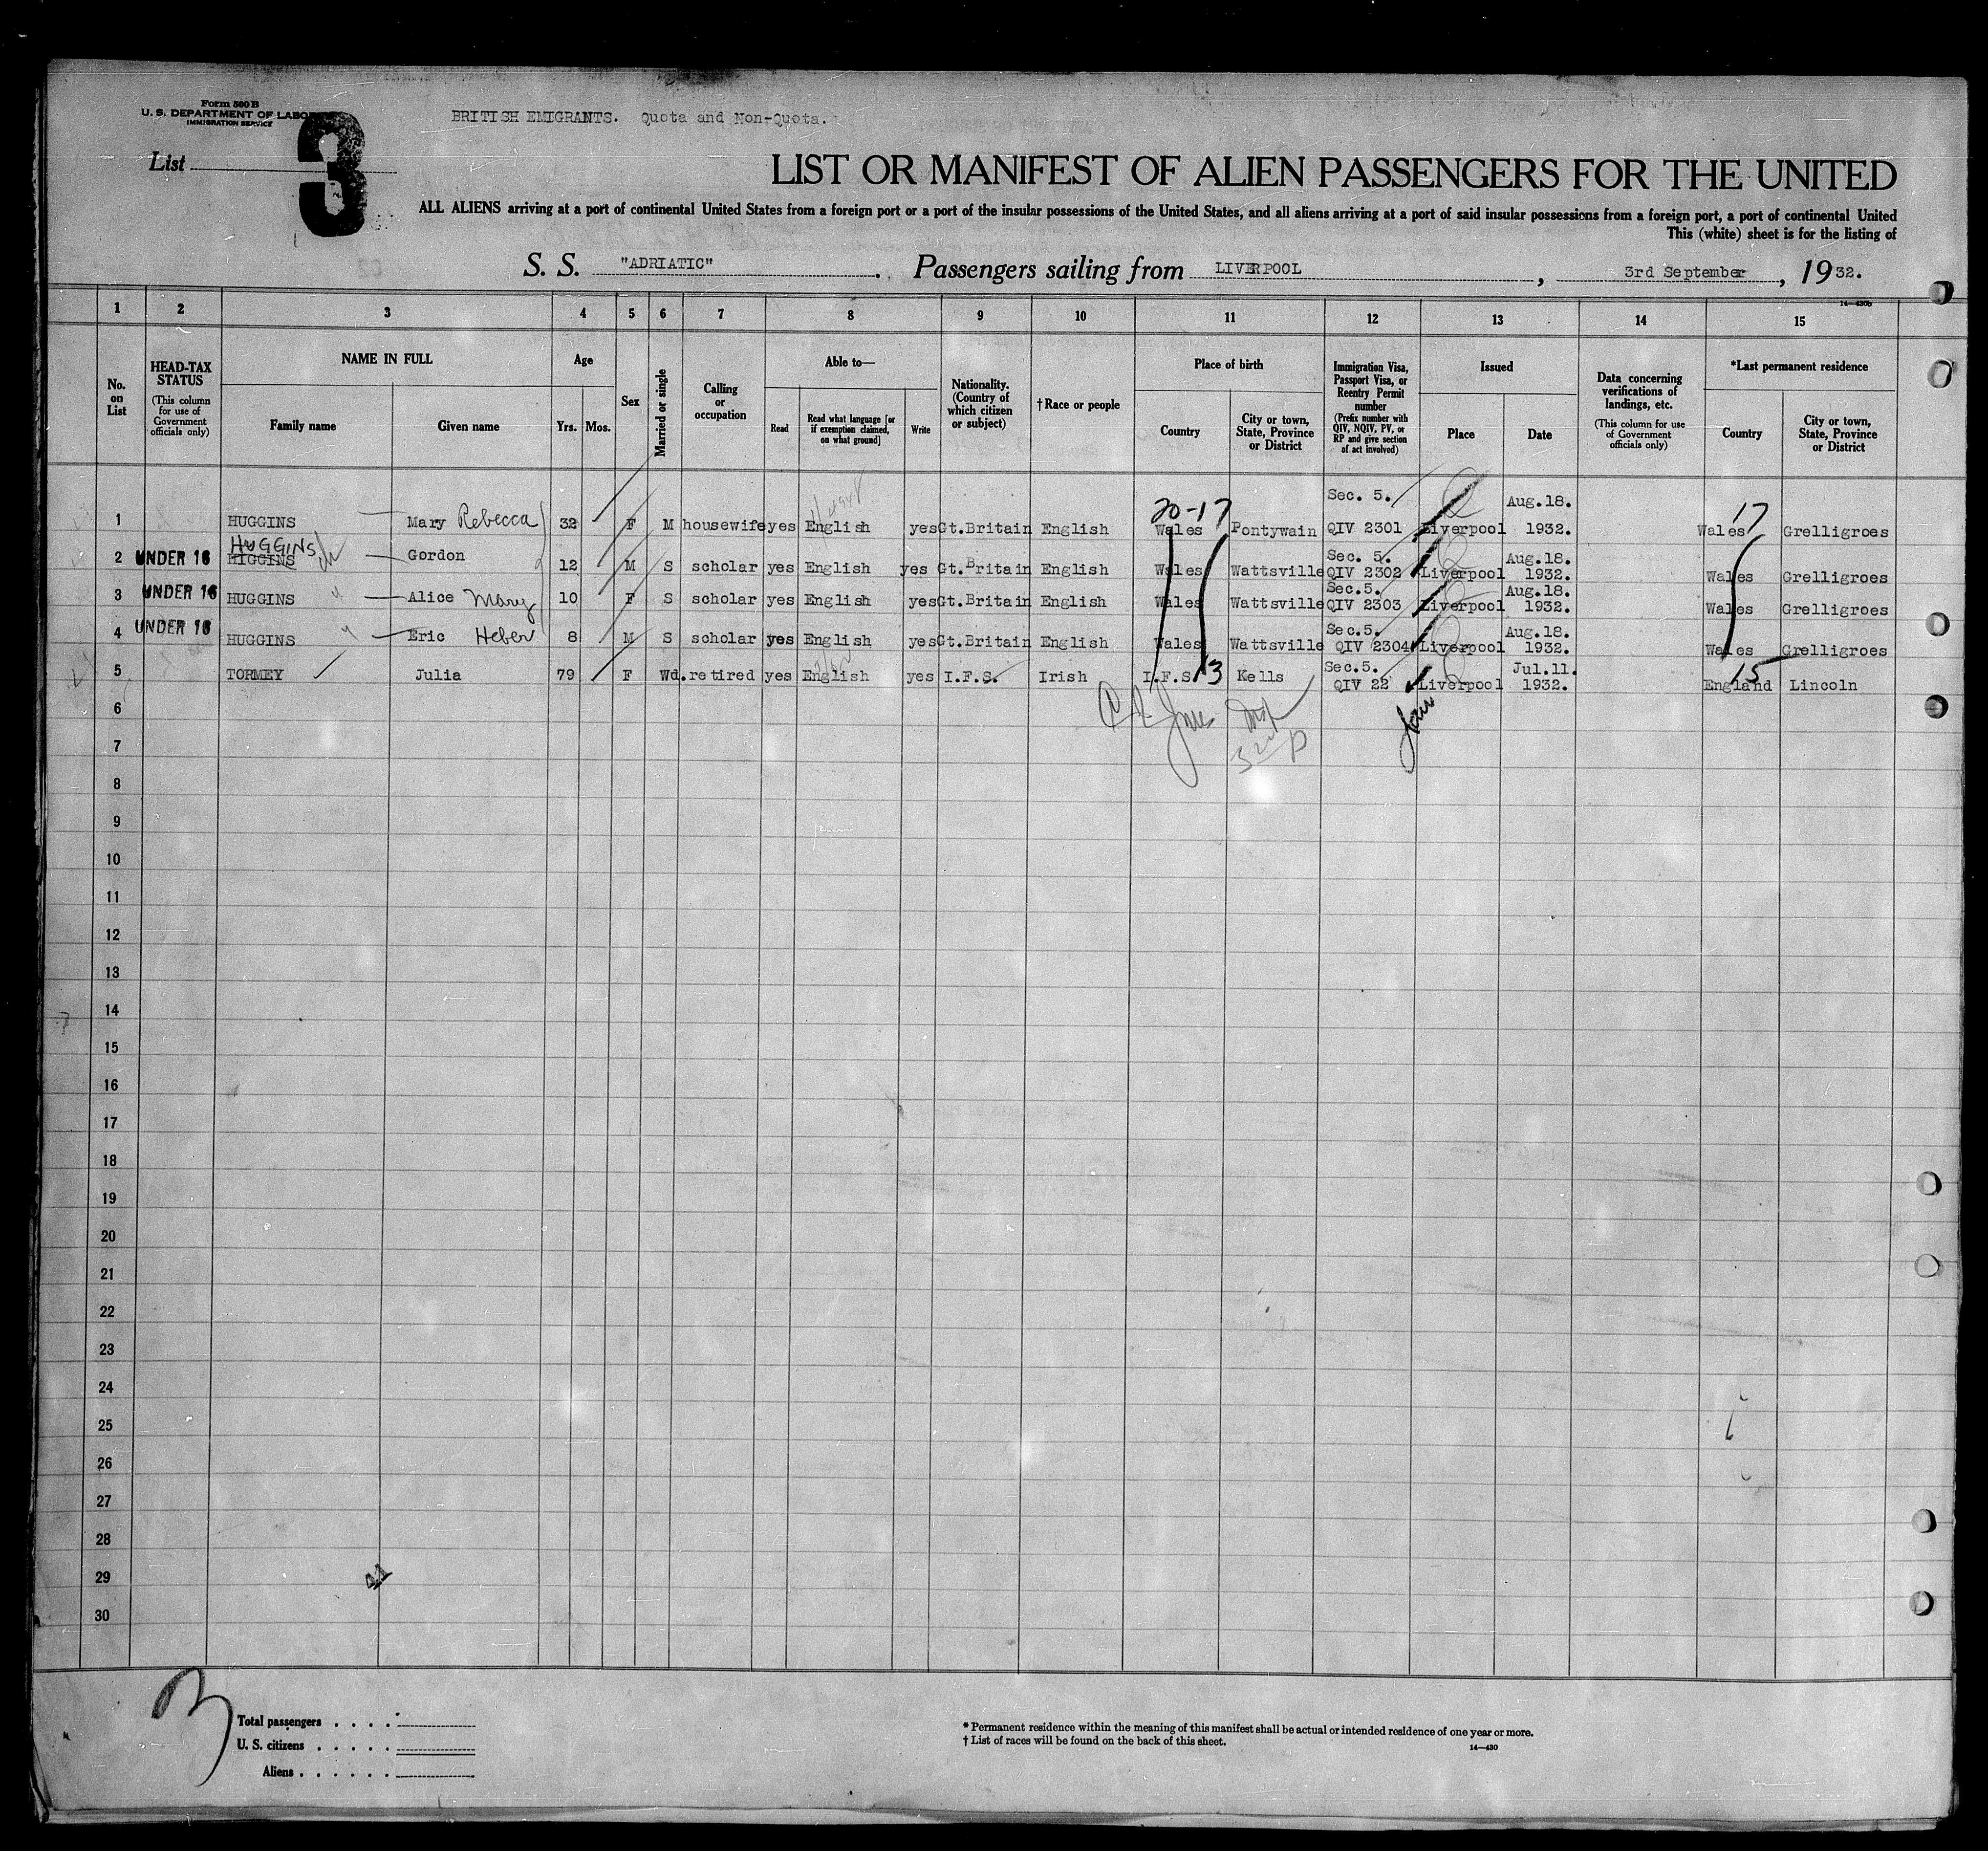 Form 500 B
U. S. DEPARTMENT OF LABOR
IMMIGRATION SERVICE
BRITISH EMIGRANTS. Quota and Non-Quota.
List 3
LIST OR MANIFEST OF ALIEN PASSENGERS FOR THE UNITED
ALL ALIENS arriving at a port of continental United States from a foreign port or a port of the insular possessions of the United States, and all aliens arriving at a port of said insular possessions from a foreign port, a port of continental United
This (white) sheet is for the listing of
S. S. "ADRIATIC". Passengers sailing from LIVERPOOL, 3rd September, 1932.
14-430b
1 2 3 4 5 6 7 8 9 10 11 12 13 14 15
No. on List
HEAD-TAX STATUS (This column for use of Government officials only)
NAME IN FULL
Family name Given name
Age
Yrs. Mos.
Sex
Married or single
Calling or occupation
Able to—
Read Read what language [or if exemption claimed, on what ground] Write
Nationality. (Country of which citizen or subject)
†Race or people
Place of birth
Country City or town, State, Province or District
Immigration Visa, Passport Visa, or Reentry Permit number (Prefix number with QIV, NQIV, PV, or RP and give section of act involved)
Issued
Place Date
Data concerning verifications of landings, etc. (This column for use of Government officials only)
*Last permanent residence
Country City or town, State, Province or District
20-17 Sec. 5. Aug.18. 17
1 HUGGINS Mary Rebecca 32 F M housewife yes English yes Gt.Britain English Wales Pontywain QIV 2301 Liverpool 1932. Wales Grelligroes
HUGGINS Sec. 5. Aug.18.
2 UNDER 16 HIGGINS Gordon 12 M S scholar yes English yes Gt.Britain English Wales Wattsville QIV 2302 Liverpool 1932. Wales Grelligroes
Sec.5. Aug.18.
3 UNDER 16 HUGGINS Alice Mary 10 F S scholar yes English yes Gt.Britain English Wales Wattsville QIV 2303 Liverpool 1932. Wales Grelligroes
Sec.5. Aug.18.
4 UNDER 16 HUGGINS Eric Heber 8 M S scholar yes English yes Gt.Britain English Wales Wattsville QIV 2304 Liverpool 1932. Wales Grelligroes
Sec.5. Jul.11. 15
5 TORMEY Julia 79 F Wd. retired yes English yes I.F.S. Irish I.F.S. 13 Kells QIV 22 Liverpool 1932. England Lincoln
6
7
8
9
10
11
12
13
14
15
16
17
18
19
20
21
22
23
24
25
26
27
28
29
30
Total passengers
U. S. citizens
Aliens
* Permanent residence within the meaning of this manifest shall be actual or intended residence of one year or more.
† List of races will be found on the back of this sheet.
14—430